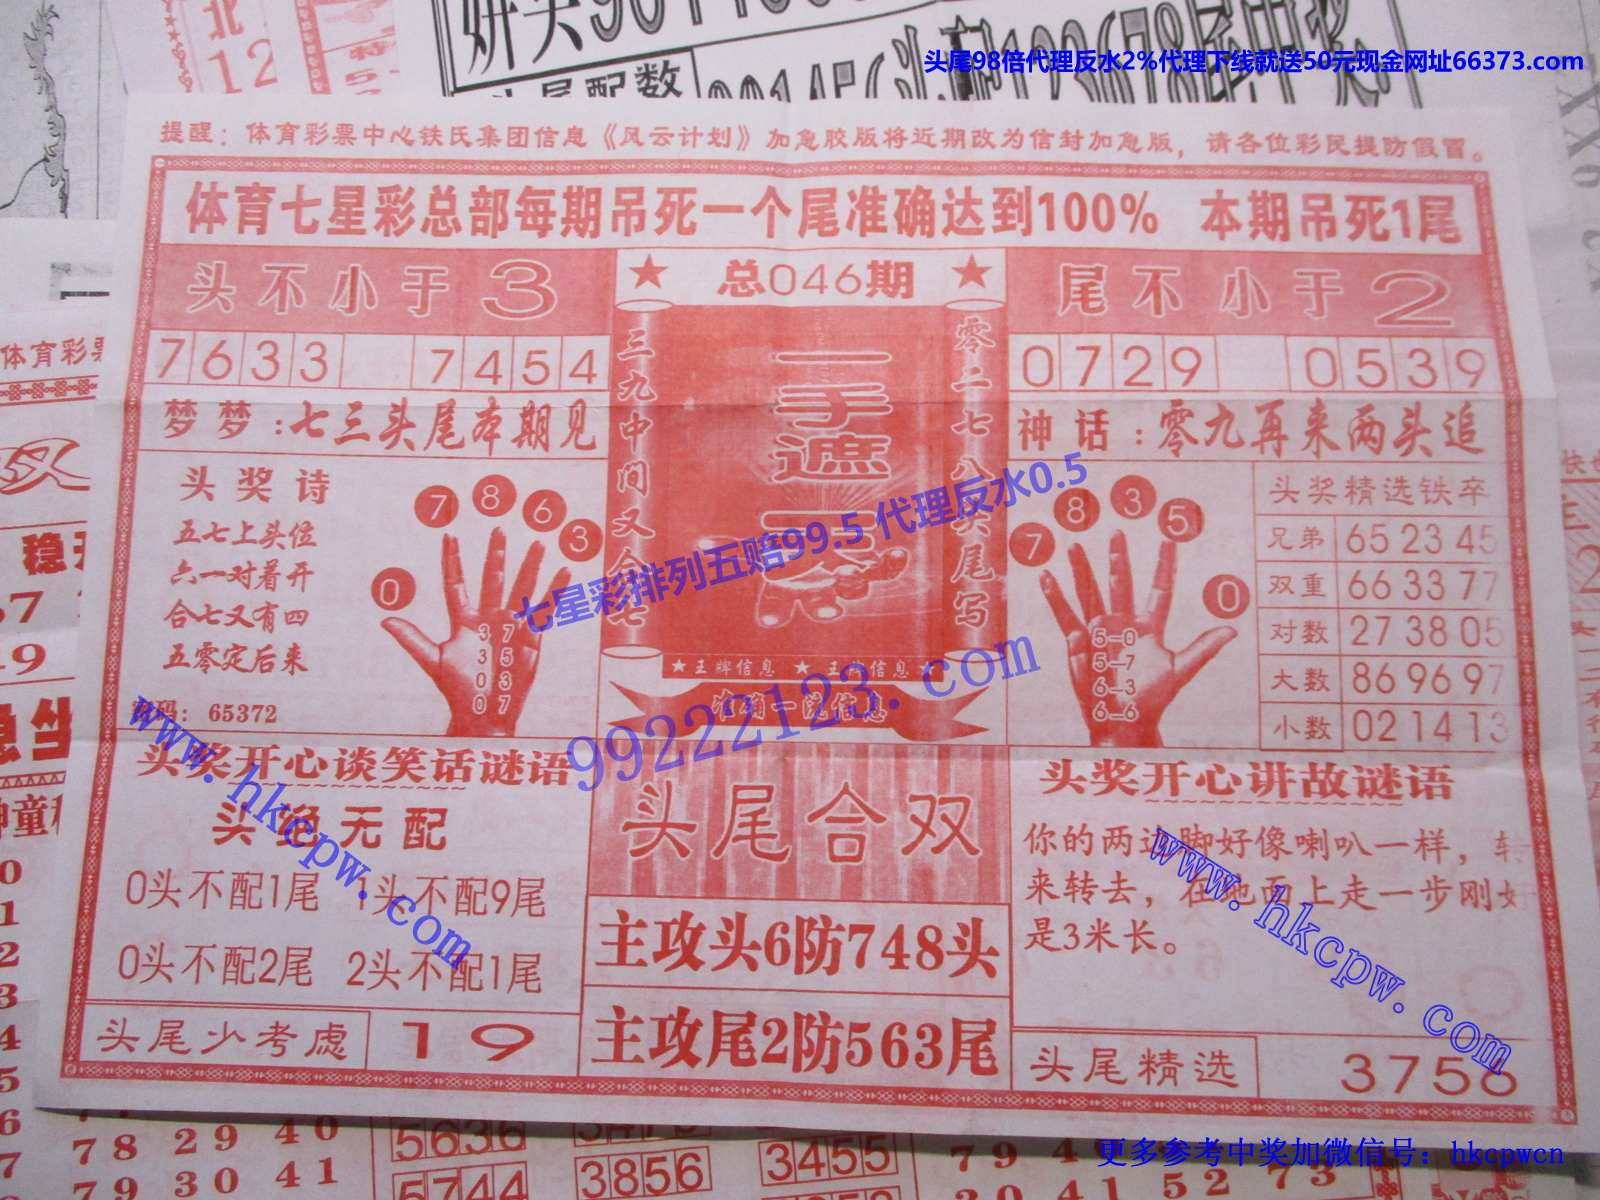 头尾98倍代理反水2%代理下线就送50元现金网址66373.com
提醒：体育彩票中心铁氏集团信息《风云计划》加急胶版将近期改为信封加急版，请各位彩民提防假冒。
体育七星彩总部每期吊死一个尾准确达到100% 本期吊死1尾
头不小于3
总046期
尾不小于2
7633 7454
0729 0539
梦梦：七三头尾本期见
神话：零九再来两头追
三九中间又合七
一手遮天
零二七八头尾写
头奖诗
五七上头位
六一对着开
合七又有四
五零定后来
密码：65372
0 7 8 6 3
3 7
3 5
0 3
0 7
7 8 3 5 0
5-0
5-7
6-3
6-6
头奖精选铁卒
兄弟 65 23 45
双重 66 33 77
对数 27 38 05
大数 86 96 97
小数 02 14 13
★王牌信息 ★王牌信息★
准确一流信息
七星彩排列五赔99.5 代理反水0.5
99222123.com
www.hkcpw.com
www.hkcpw.com
头奖开心谈笑话谜语
头绝无配
0头不配1尾 1头不配9尾
0头不配2尾 2头不配1尾
头尾少考虑 19
头尾合双
主攻头6防748头
主攻尾2防563尾
头奖开心讲故谜语
你的两边脚好像喇叭一样，转
来转去，在地面上走一步刚好
是3米长。
头尾精选 3756
更多参考中奖加微信号：hkcpwcn
北
12
头尾配数
体育彩票
双
78 29 40
79 30 41
5636
3856
5744
3455